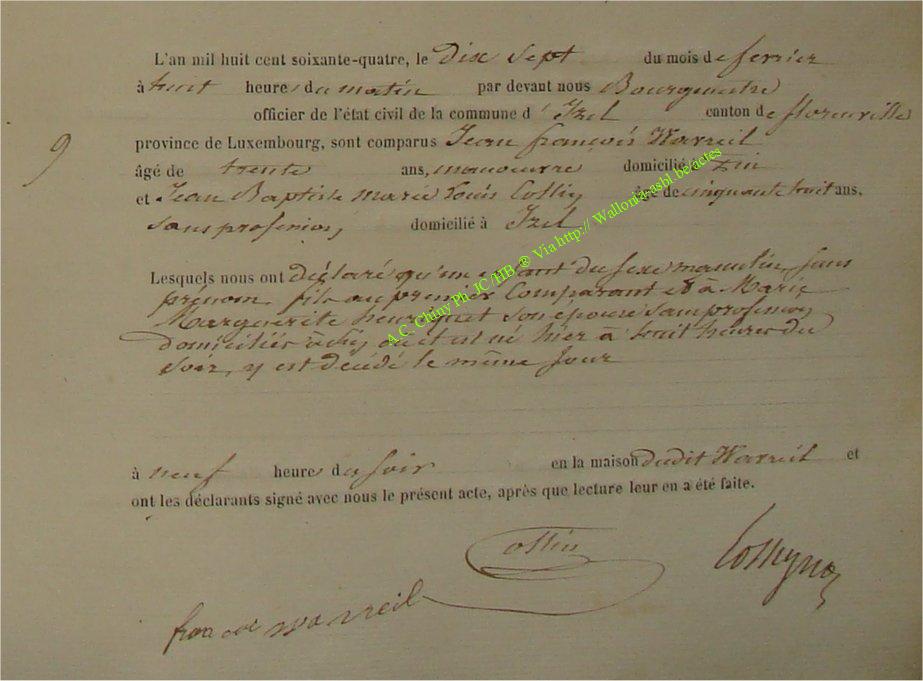 L'an mil huit cent soixante-quatre, le dix sept du mois de fevrier
à huit heures du matin par devant nous Bourgmestre
officier de l'état civil de la commune d'Izel canton de florenville
9
province de Luxembourg, sont comparus Jean françois Warreil
âgé de trente ans, manoeuvre domicilié
et Jean Baptiste marie Louis Collin âgé de cinquante huit ans,
sans profession, domicilié à Izel
Lesquels nous ont déclaré qu'un enfant du sexe masculin, sans
prénom, fils au premier Comparant et à Marie
Marguerite henriquet son épouse sans profession
domiciliés à où il est né hier à huit heures du
soir, y est décédé le même jour
à neuf heures du soir en la maison dudit Warreil et
ont les déclarants signé avec nous le présent acte, après que lecture leur en a été faite.
Collin
warreil
A.C. Chiny Ph. JC /HB ® Via http:// Wallonia.asbl.be/actes